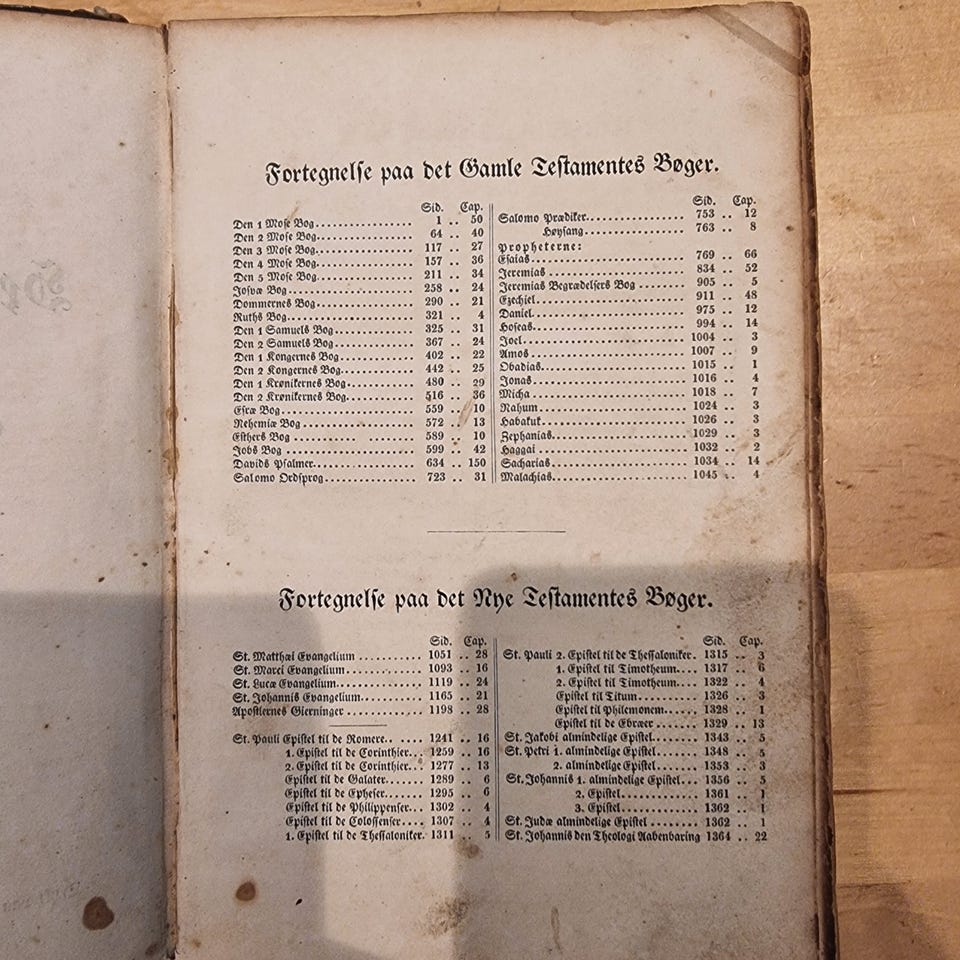 Fortegnelse paa det Gamle Testamentes Bøger.
Sid. Cap.
Den 1 Mose Bog 1 .. 50
Den 2 Mose Bog 64 .. 40
Den 3 Mose Bog 117 .. 27
Den 4 Mose Bog 157 .. 36
Den 5 Mose Bog 211 .. 34
Josvæ Bog 258 .. 24
Dommernes Bog 290 .. 21
Ruths Bog 321 .. 4
Den 1 Samuels Bog 325 .. 31
Den 2 Samuels Bog 367 .. 24
Den 1 Kongernes Bog 402 .. 22
Den 2 Kongernes Bog 442 .. 25
Den 1 Krønikernes Bog 480 .. 29
Den 2 Krønikernes Bog 516 .. 36
Esræ Bog 559 .. 10
Nehemiæ Bog 572 .. 13
Esthers Bog 589 .. 10
Jobs Bog 599 .. 42
Davids Psalmer 634 .. 150
Salomo Ordsprog 723 .. 31
Sid. Cap.
Salomo Prædiker 753 .. 12
Høysang 763 .. 8
Propheterne:
Esaias 769 .. 66
Jeremias 834 .. 52
Jeremias Begrædelsers Bog 905 .. 5
Ezechiel 911 .. 48
Daniel 975 .. 12
Hoseas 994 .. 14
Joel 1004 .. 3
Amos 1007 .. 9
Obadias 1015 .. 1
Jonas 1016 .. 4
Micha 1018 .. 7
Nahum 1024 .. 3
Habakuk 1026 .. 3
Zephanias 1029 .. 3
Haggai 1032 .. 2
Sacharias 1034 .. 14
Malachias 1045 .. 4
Fortegnelse paa det Nye Testamentes Bøger.
Sid. Cap.
St. Matthæi Evangelium 1051 .. 28
St. Marci Evangelium 1093 .. 16
St. Lucæ Evangelium 1119 .. 24
St. Johannis Evangelium 1165 .. 21
Apostlernes Gierninger 1198 .. 28
St. Pauli Epistel til de Romere 1241 .. 16
1. Epistel til de Corinthier 1259 .. 16
2. Epistel til de Corinthier 1277 .. 13
Epistel til de Galater 1289 .. 6
Epistel til de Epheser 1295 .. 6
Epistel til de Philippenser 1302 .. 4
Epistel til de Colossenser 1307 .. 4
1. Epistel til de Thessaloniker. 1311 .. 5
Sid. Cap.
St. Pauli 2. Epistel til de Thessaloniker. 1315 .. 3
1. Epistel til Timotheum 1317 .. 6
2. Epistel til Timotheum 1322 .. 4
Epistel til Titum 1326 .. 3
Epistel til Philemonem 1328 .. 1
Epistel til de Ebræer 1329 .. 13
St. Jakobi almindelige Epistel 1343 .. 5
St. Petri 1. almindelige Epistel 1348 .. 5
2. almindelige Epistel 1353 .. 3
St. Johannis 1. almindelige Epistel 1356 .. 5
2. Epistel 1361 .. 1
3. Epistel 1362 .. 1
St. Judæ almindelige Epistel 1362 .. 1
St. Johannis den Theologi Aabenbaring 1364 .. 22